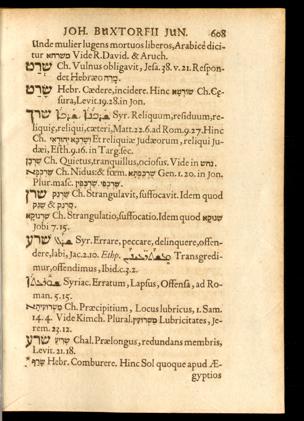 JOH. BUXTORFII JUN. 608
Unde mulier lugens mortuos liberos, Arabicè dici-
tur משרטא Vide R. David. & Aruch.
שרט Ch. Vulnus obligavit, Jesa. 38. v. 21. Respon-
det Hebræo מרח.
שרט Hebr. Cædere, incidere. Hinc שורטא Ch. Cę-
sura, Levit. 19. 28. in Jon.
שרך Syr. Reliquum, residuum, re-
siquiæ, reliqui, cæteri, Matt. 22. 6. ad Rom. 9. 27. Hinc
Ch. Et reliquiæ Judæorum, reliqui Ju-
dæi, Esth. 9. 16. in Targ. sec.
Ch. Quietus, tranquillus, ociosus. Vide in
Ch. Nidus: & fœm. Gen. 1. 20. in Jon.
Plur. masc.
שרנק Ch. Strangulavit, suffocavit. Idem quod
סרנק & שנק
שרנוקא Ch. Strangulatio, suffocatio. Idem quod שנוקא
Jobi 7. 15.
שרע Syr. Errare, peccare, delinquere, offen-
dere, labi, Jac. 2. 10. Ethp. Transgredi-
mur, offendimus, Ibid. c. 3. 2.
Syriac. Erratum, Lapsus, Offensa, ad Ro-
man. 5. 15.
Ch. Præcipitium, Locus lubricus, 1. Sam.
14. 4. Vide Kimch. Plural. Lubricitates, Je-
rem. 23. 12.
שרע שרוע Chal. Prælongus, redundans membris,
Levit. 21. 18.
* שרף Hebr. Comburere. Hinc Sol quoque apud Æ-
gyptios